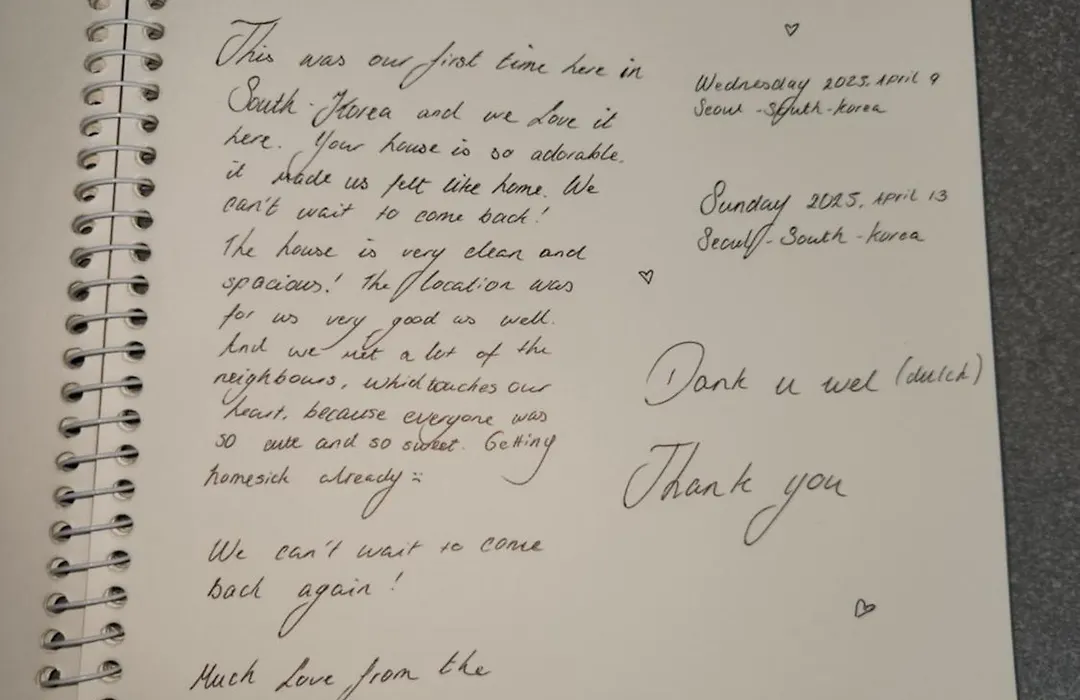 This was our first time here in
South-Korea and we love it
here. Your house is so adorable.
it made us felt like home. We
can't wait to come back!
The house is very clean and
spacious! The location was
for us very good as well.
And we met a lot of the
neighbours, which touches our
heart, because everyone was
so cute and so sweet. Getting
homesick already :(
We can't wait to come
back again!
Much love from the
Wednesday 2025. April 9
Seoul - South - Korea
Sunday 2025. April 13
Seoul - South - Korea
Dank u wel (dutch)
Thank you